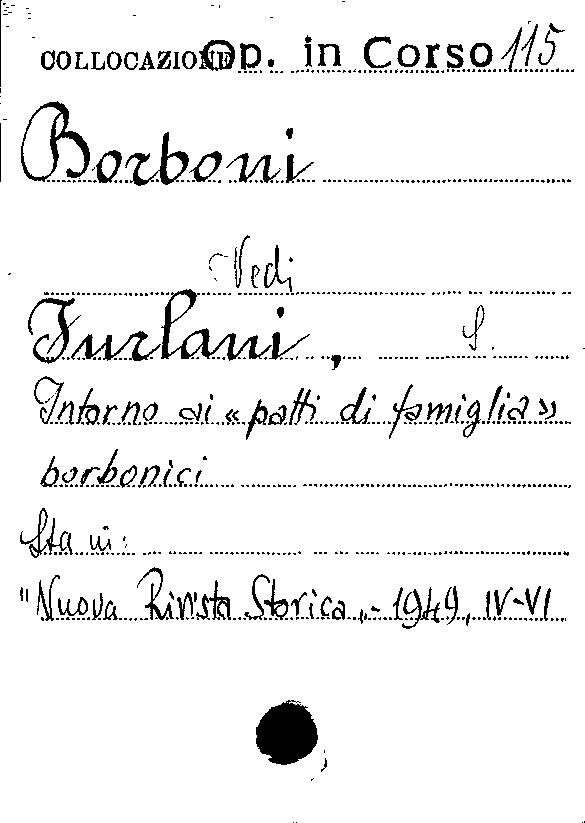 COLLOCAZIONE Op. in Corso 115
Borboni
Vedi
Furlani, S.
Intorno ai «patti di famiglia»
borbonici
Sta in:
"Nuova Rivista Storica„- 1949, IV-VI